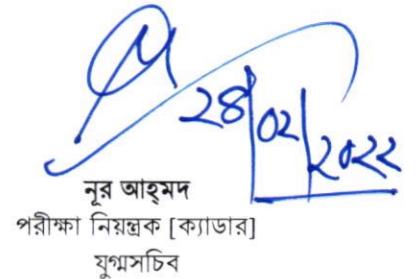 ২৪|০২|২০২২
নূর আহ্‌মদ
পরীক্ষা নিয়ন্ত্রক [ক্যাডার]
যুগ্মসচিব